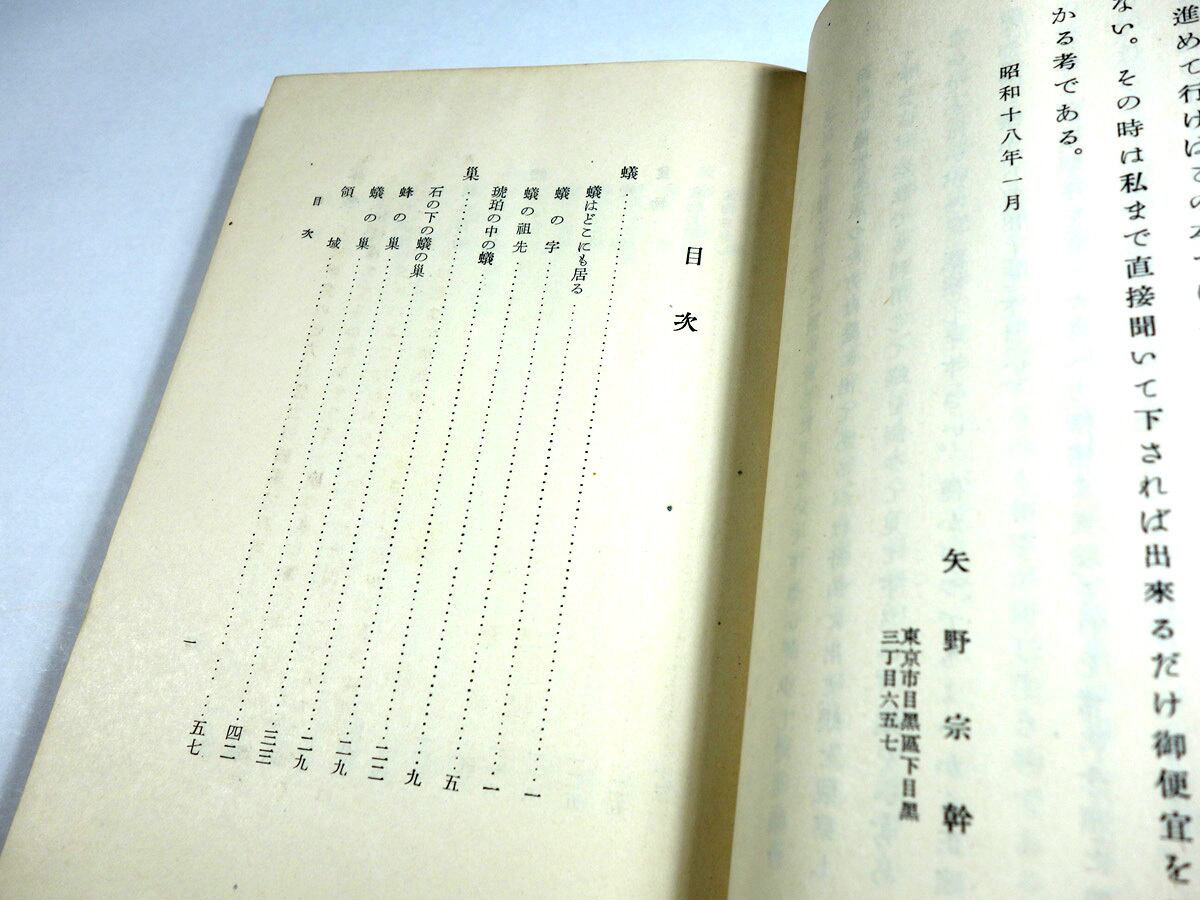 進めて行け
ない。その時は私まで直接聞いて下されば出來るだけ御便宜を
かる考である。
昭和十八年一月
矢野宗幹
東京市目黒區下目黒
三丁目六五七
目次
蟻…………一
蟻はどこにも居る…………一
蟻の字…………五
蟻の祖先…………九
琥珀の中の蟻…………二二
巣…………二九
石の下の蟻の巣…………二九
蜂の巣…………三三
蟻の巣…………四二
領域…………五七
目次
一